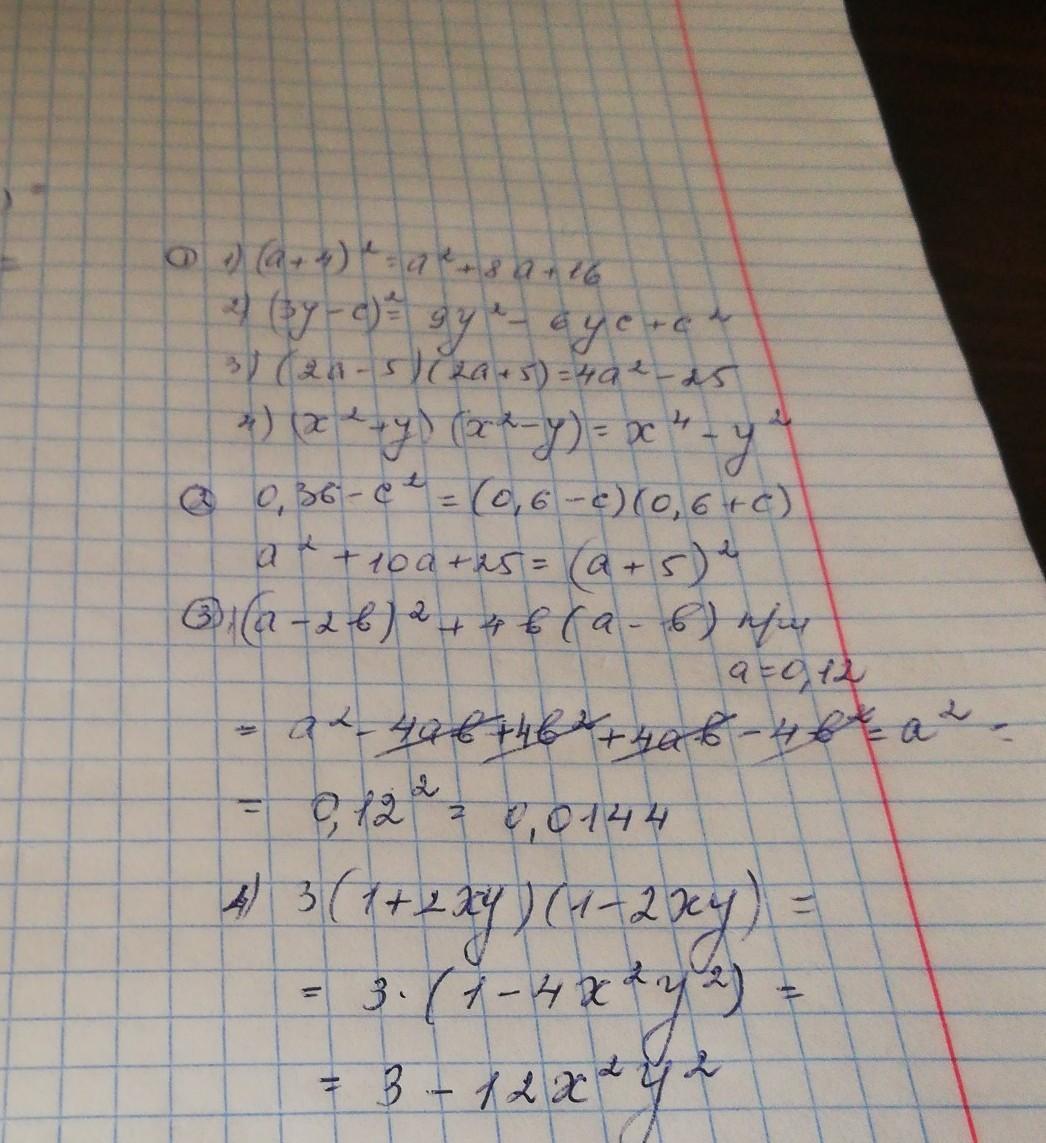 ① 1) (a+4)² = a² + 8a + 16
2) (3y-c)² = 9y² - 6yc + c²
3) (2a-5)(2a+5) = 4a² - 25
4) (x²+y)(x²-y) = x⁴ - y²
② 0,36 - c² = (0,6 - c)(0,6 + c)
a² + 10a + 25 = (a + 5)²
③ 1) (a - 2b)² + 4b(a - b) при
a = 0,12
= a² - 4ab + 4b² + 4ab - 4b² = a² =
= 0,12² = 0,0144
4) 3(1+2xy)(1-2xy) =
= 3·(1 - 4x²y²) =
= 3 - 12x²y²